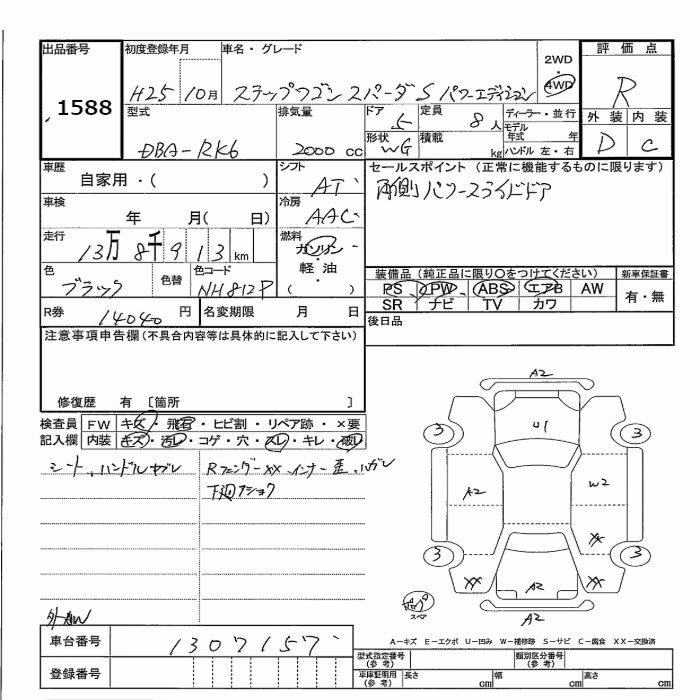 出品番号
1588
初度登録年月
H25 10月
車名・グレード
ステップワゴン スパーダS パワーエディション
2WD
・
4WD
評価点
R
外装 内装
D C
型式
DBA-RK6
排気量
2000 cc
ドア 5
定員 8人
ディーラー・並行
モデル年式 年
形状 WG
積載 kg
ハンドル 左・右
車歴
自家用・( )
シフト
AT
セールスポイント (正常に機能するものに限ります)
両側パワースライドドア
車検
年 月( 日)
冷房
AAC
走行
13万8千913km
燃料
ガソリン
・
軽油
( )
色
ブラック
色替
色コード
NH812P
装備品 (純正品に限り○をつけてください)
新車保証書
PS PW ABS エアB AW
有・無
SR ナビ TV カワ
R券 14040 円
名変期限 月 日
後日品
注意事項申告欄(不具合内容等は具体的に記入して下さい)
修復歴 有 [箇所 ]
検査員
記入欄
FW キズ・飛石・ヒビ割・リペア跡・×要
内装 キズ・汚レ・コゲ・穴・スレ・キレ・破レ
シート、ハンドルヤブレ
RフェンダーXX インナー歪、ハガレ
下廻
A2
U1
3
3
A2
W2
XX
3
3
XX
XX
A2
A2
スペア
A-キズ E-エクボ U-凹み W-補修跡 S-サビ C-腐食 XX-交換済
車台番号
1307157
登録番号
型式指定番号
(参考)
類別区分番号
(参考)
車庫証明用
(参考)
長さ cm
幅 cm
高さ cm